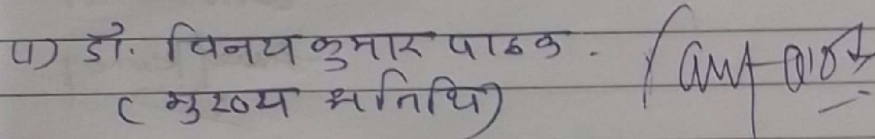 ५) डॉ. विनय कुमार पाठक.
(मुख्य अतिथि)